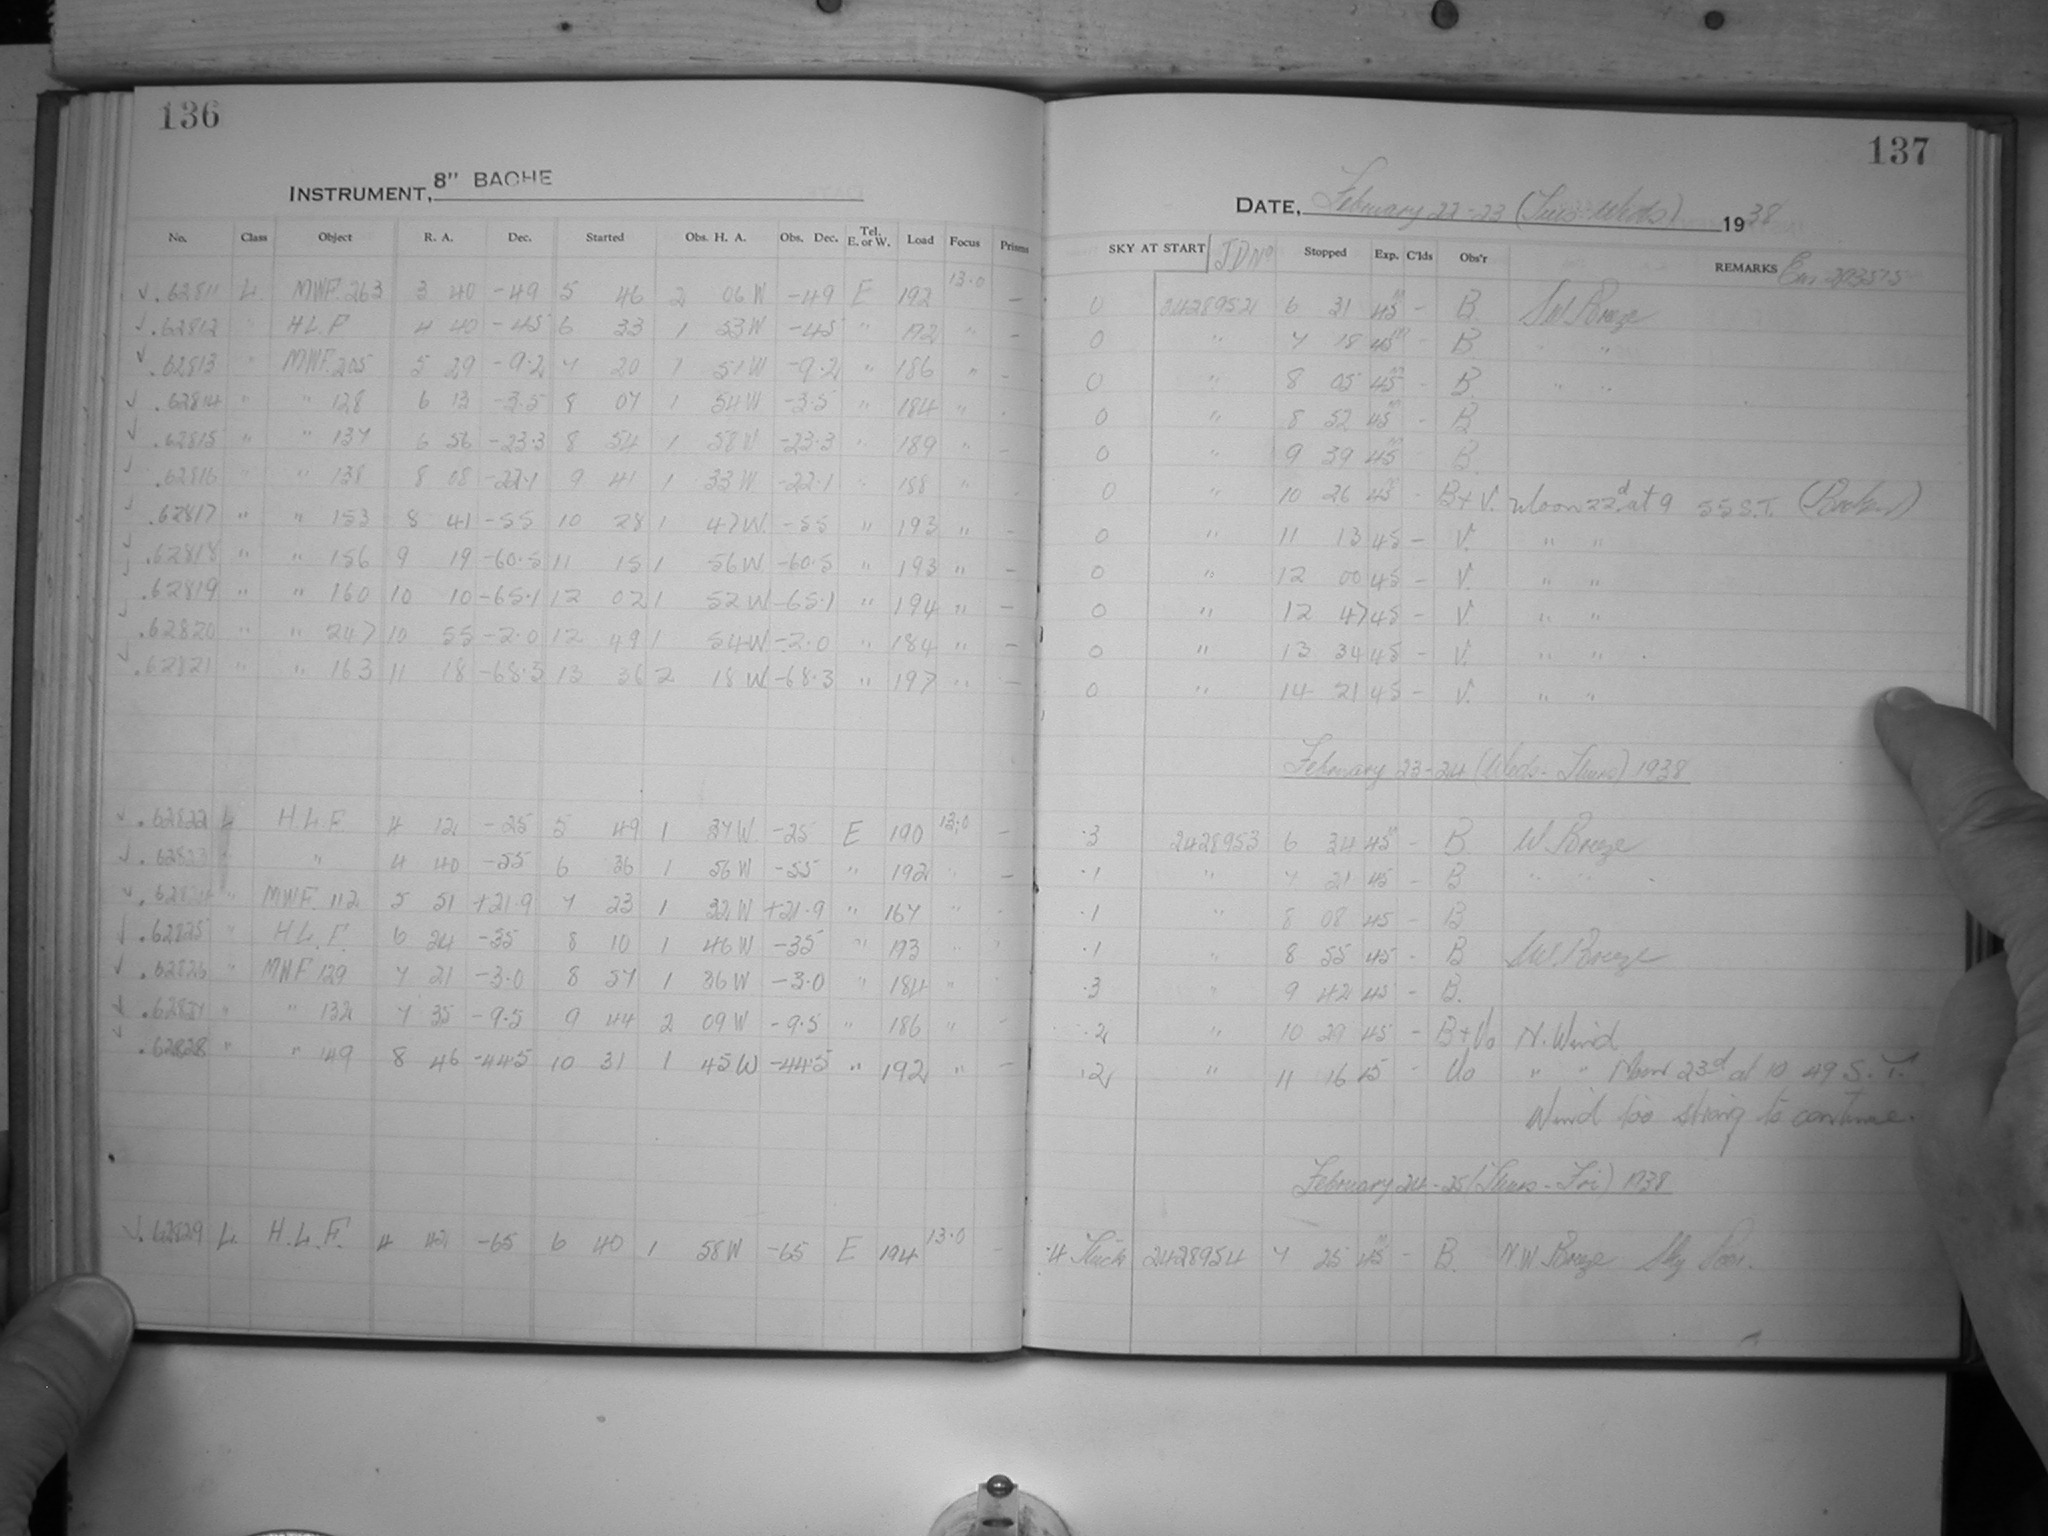 136
INSTRUMENT, 8" BACHE
No. Class Object R. A. Dec. Started Obs. H. A. Obs. Dec. Tel. E. or W. Load Focus Prisms
.62811 L MWF. 263 3 40 -49 5 46 2 06 W -49 E 192 13.0 -
.62812 " H.L.F 4 40 -45 6 33 1 53 W -45 " 192 " -
.62813 " MWF. 205 5 29 -9.2 7 20 1 51 W -9.2 " 186 " -
.62814 " " 128 6 13 -3.5 8 07 1 54 W -3.5 " 184 "
.62815 " " 137 6 56 -23.3 8 54 1 58 W -23.3 " 189 "
.62816 " " 138 8 08 -22.1 9 41 1 33 W -22.1 " 188 "
.62817 " " 153 8 41 -55 10 28 1 47 W. -55 " 193 " -
.62818 " " 156 9 19 -60.5 11 15 1 56 W. -60.5 " 193 " -
.62819 " " 160 10 10 -65.1 12 02 1 52 W -65.1 " 194 " -
.62820 " " 247 10 55 -2.0 12 49 1 54 W -2.0 " 184 " -
.62821 " " 163 11 18 -68.3 13 36 2 18 W -68.3 " 197 " -
.62822 L H.L.F 4 12 -25 5 49 1 37 W -25 E 190 13.0 -
.62823 " " 4 40 -55 6 36 1 56 W -55 " 192 " -
" MWF. 112 5 51 +21.9 7 23 1 32 W +21.9 " 167 "
.62825 " H.L.F. 6 24 -35 8 10 1 46 W -35 " 193 "
.62826 " MWF 129 7 21 -3.0 8 57 1 36 W -3.0 " 184 "
" " 132 7 35 -9.5 9 44 2 09 W -9.5 " 186 " -
.62828 " " 149 8 46 -44.5 10 31 1 45 W -44.5 " 192 " -
.62829 L. H.L.F. 4 42 -65 6 40 1 58 W -65 E 194 13.0 -
137
DATE, February 22-23 (Tues-Weds) 1938
SKY AT START J D No Stopped Exp. C'lds Obs'r REMARKS
0 6 31 45m - B. SW. Breeze
0 " 7 18 45m - B. " "
0 " 8 05 45m - B. " "
0 " 8 52 45m - B
0 " 9 39 45m - B.
0 " 10 26 45m - B+V. Moon 22d at 9 55 S.T.
0 " 11 13 45 - V. " "
0 " 12 00 45 - V. " "
0 " 12 47 45 - V. " "
0 " 13 34 45 - V. " "
0 " 14 21 45 - V. " "
February 23-24 (Weds-Thurs) 1938
.3 2428953 6 34 45m - B. W. Breeze
.1 " 7 21 45 - B " "
.1 " 8 08 45 - B
.1 " 8 55 45 - B SW. Breeze
.3 " 9 42 45 - B.
.2 " 10 29 45 - B+Vo N. Wind
.2 " 11 16 45 - Vo " " Moon 23d at 10 49 S.T.
Wind too strong to continue.
February 24-25 (Thurs-Fri) 1938
.4 Thick 2428954 7 25 45m - B. N.W Breeze Sky Poor.